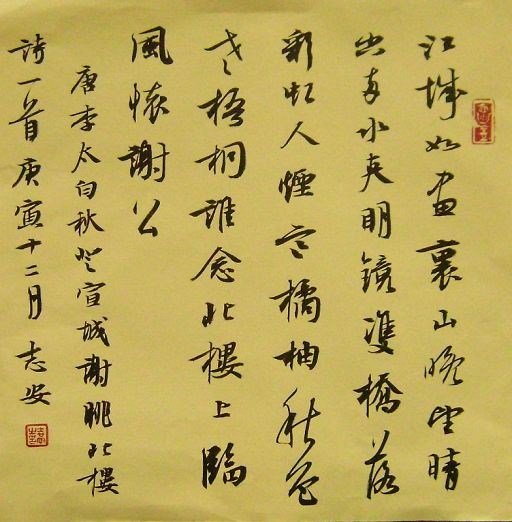 江城如畫裏山晚望晴
空兩水夾明鏡雙橋落
彩虹人煙寒橘柚秋色
老梧桐誰念北樓上臨
風懷謝公
唐李太白秋登宣城謝朓北樓
詩一首庚寅十二月志安